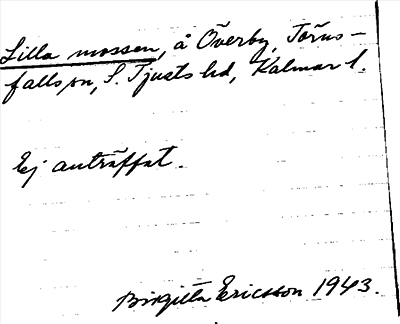 Lilla mossen, å Överby, Törns-
falls sn, S. Tjusts hd, Kalmar l.
Ej anträffat.
Birgitta Ericsson 1943.